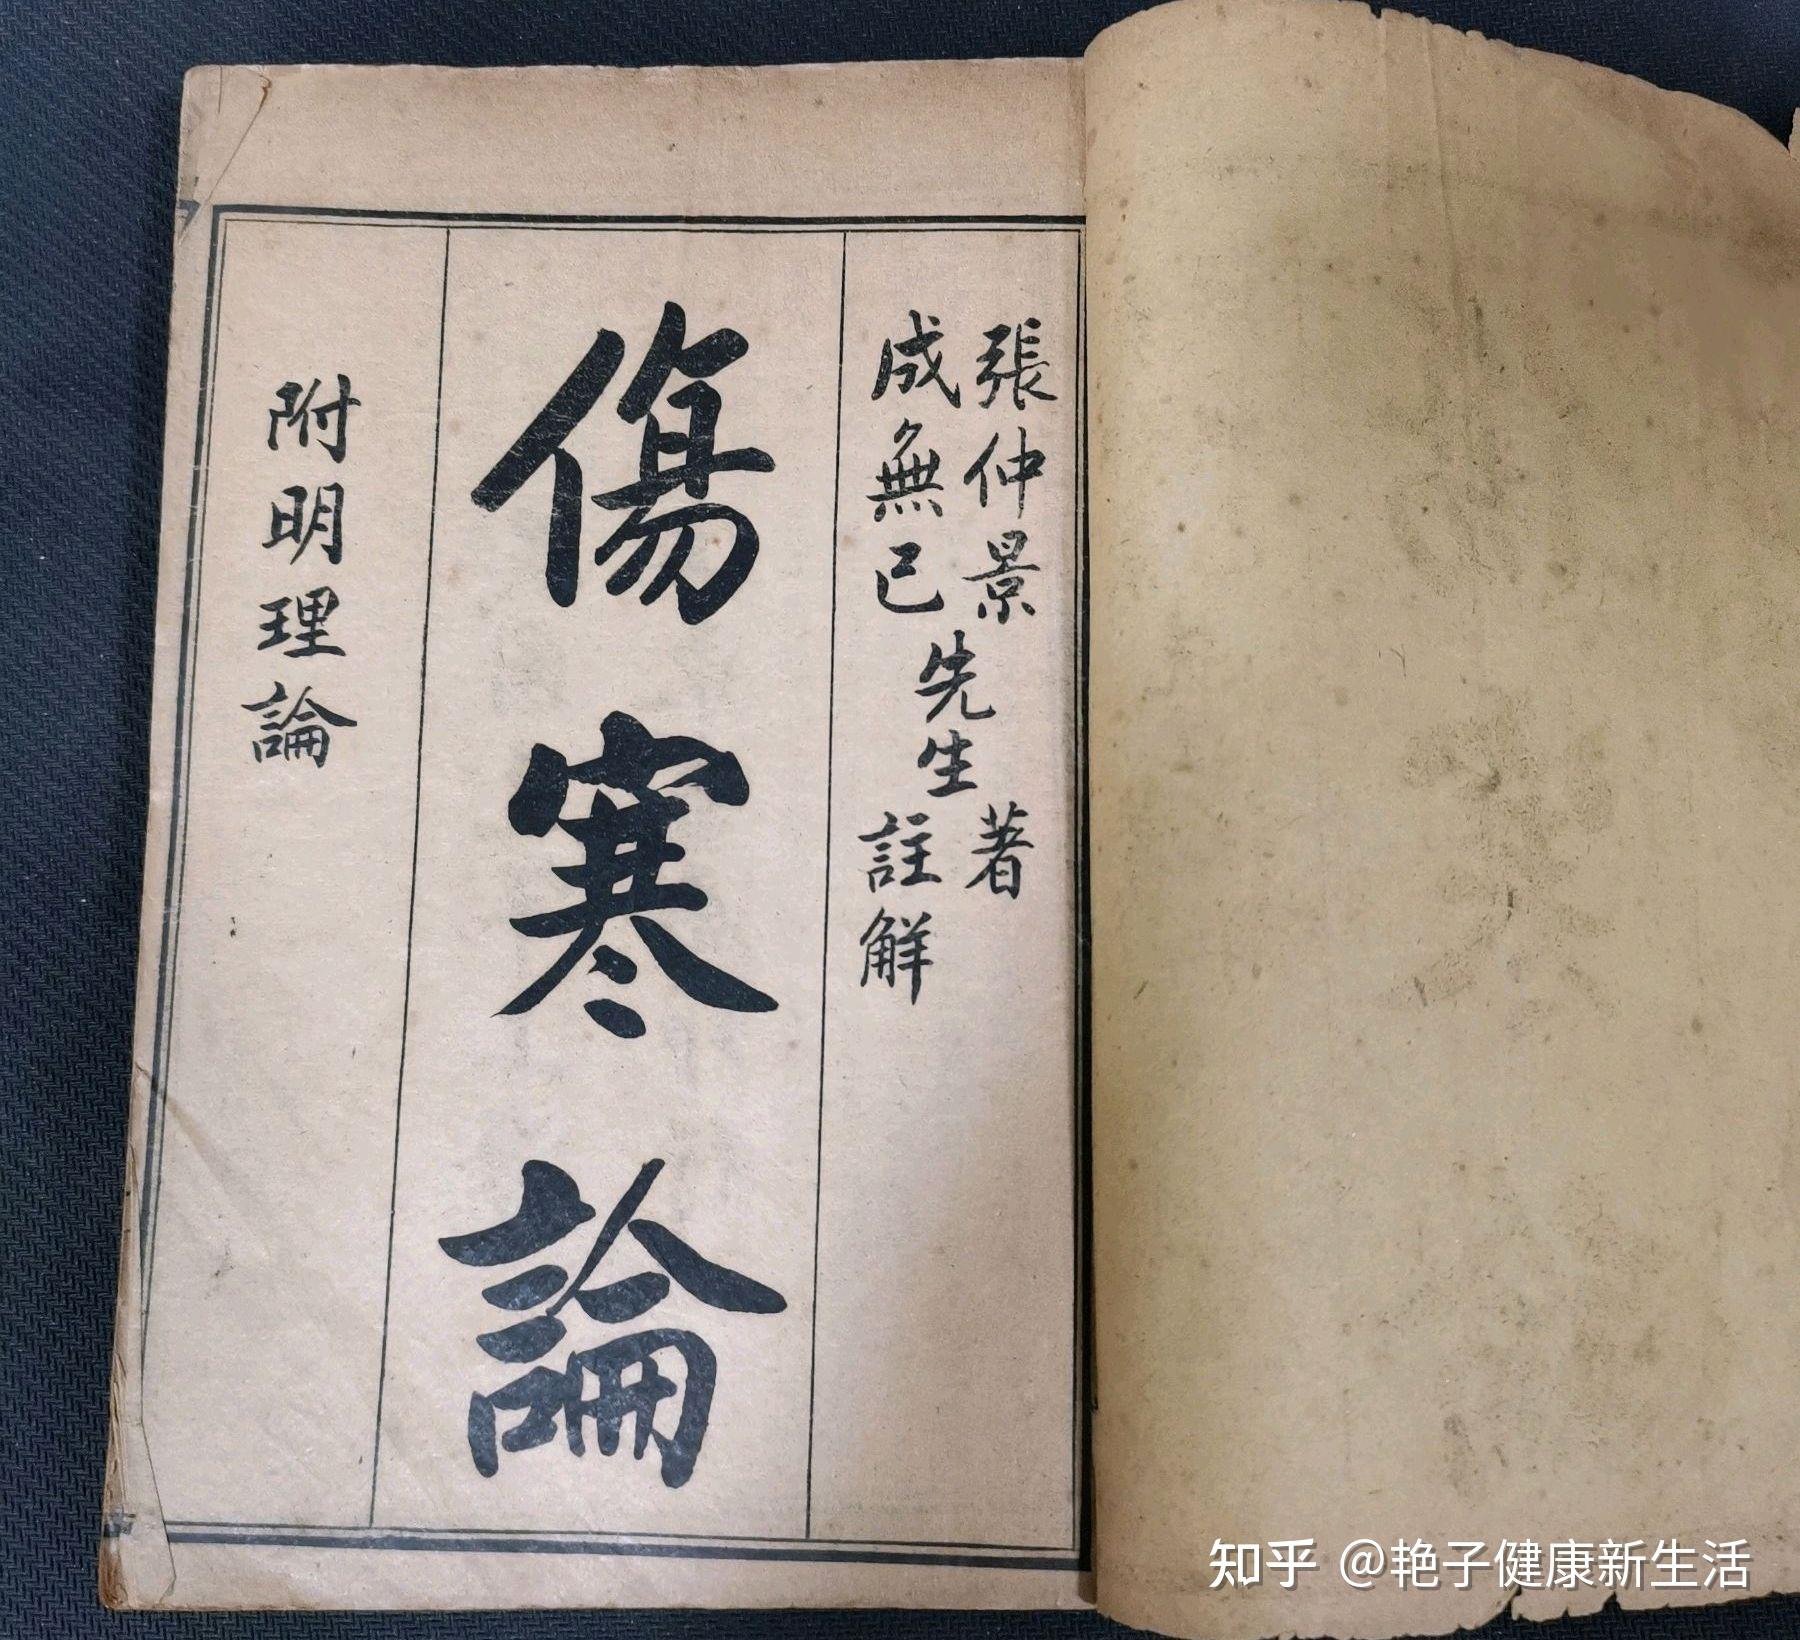 張仲景先生著
成無已先生註解
傷寒論
附明理論
知乎 @艳子健康新生活